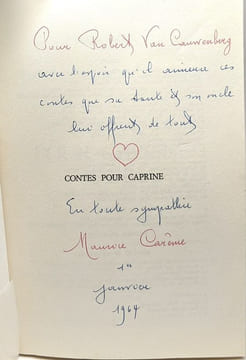 Pour Robert Van Cauwenberg
avec l'espoir qu'il aimera ces
contes que sa tante et son oncle
lui offrent de tout
CONTES POUR CAPRINE
En toute sympathie
Maurice Carême
1er
janvier
1964